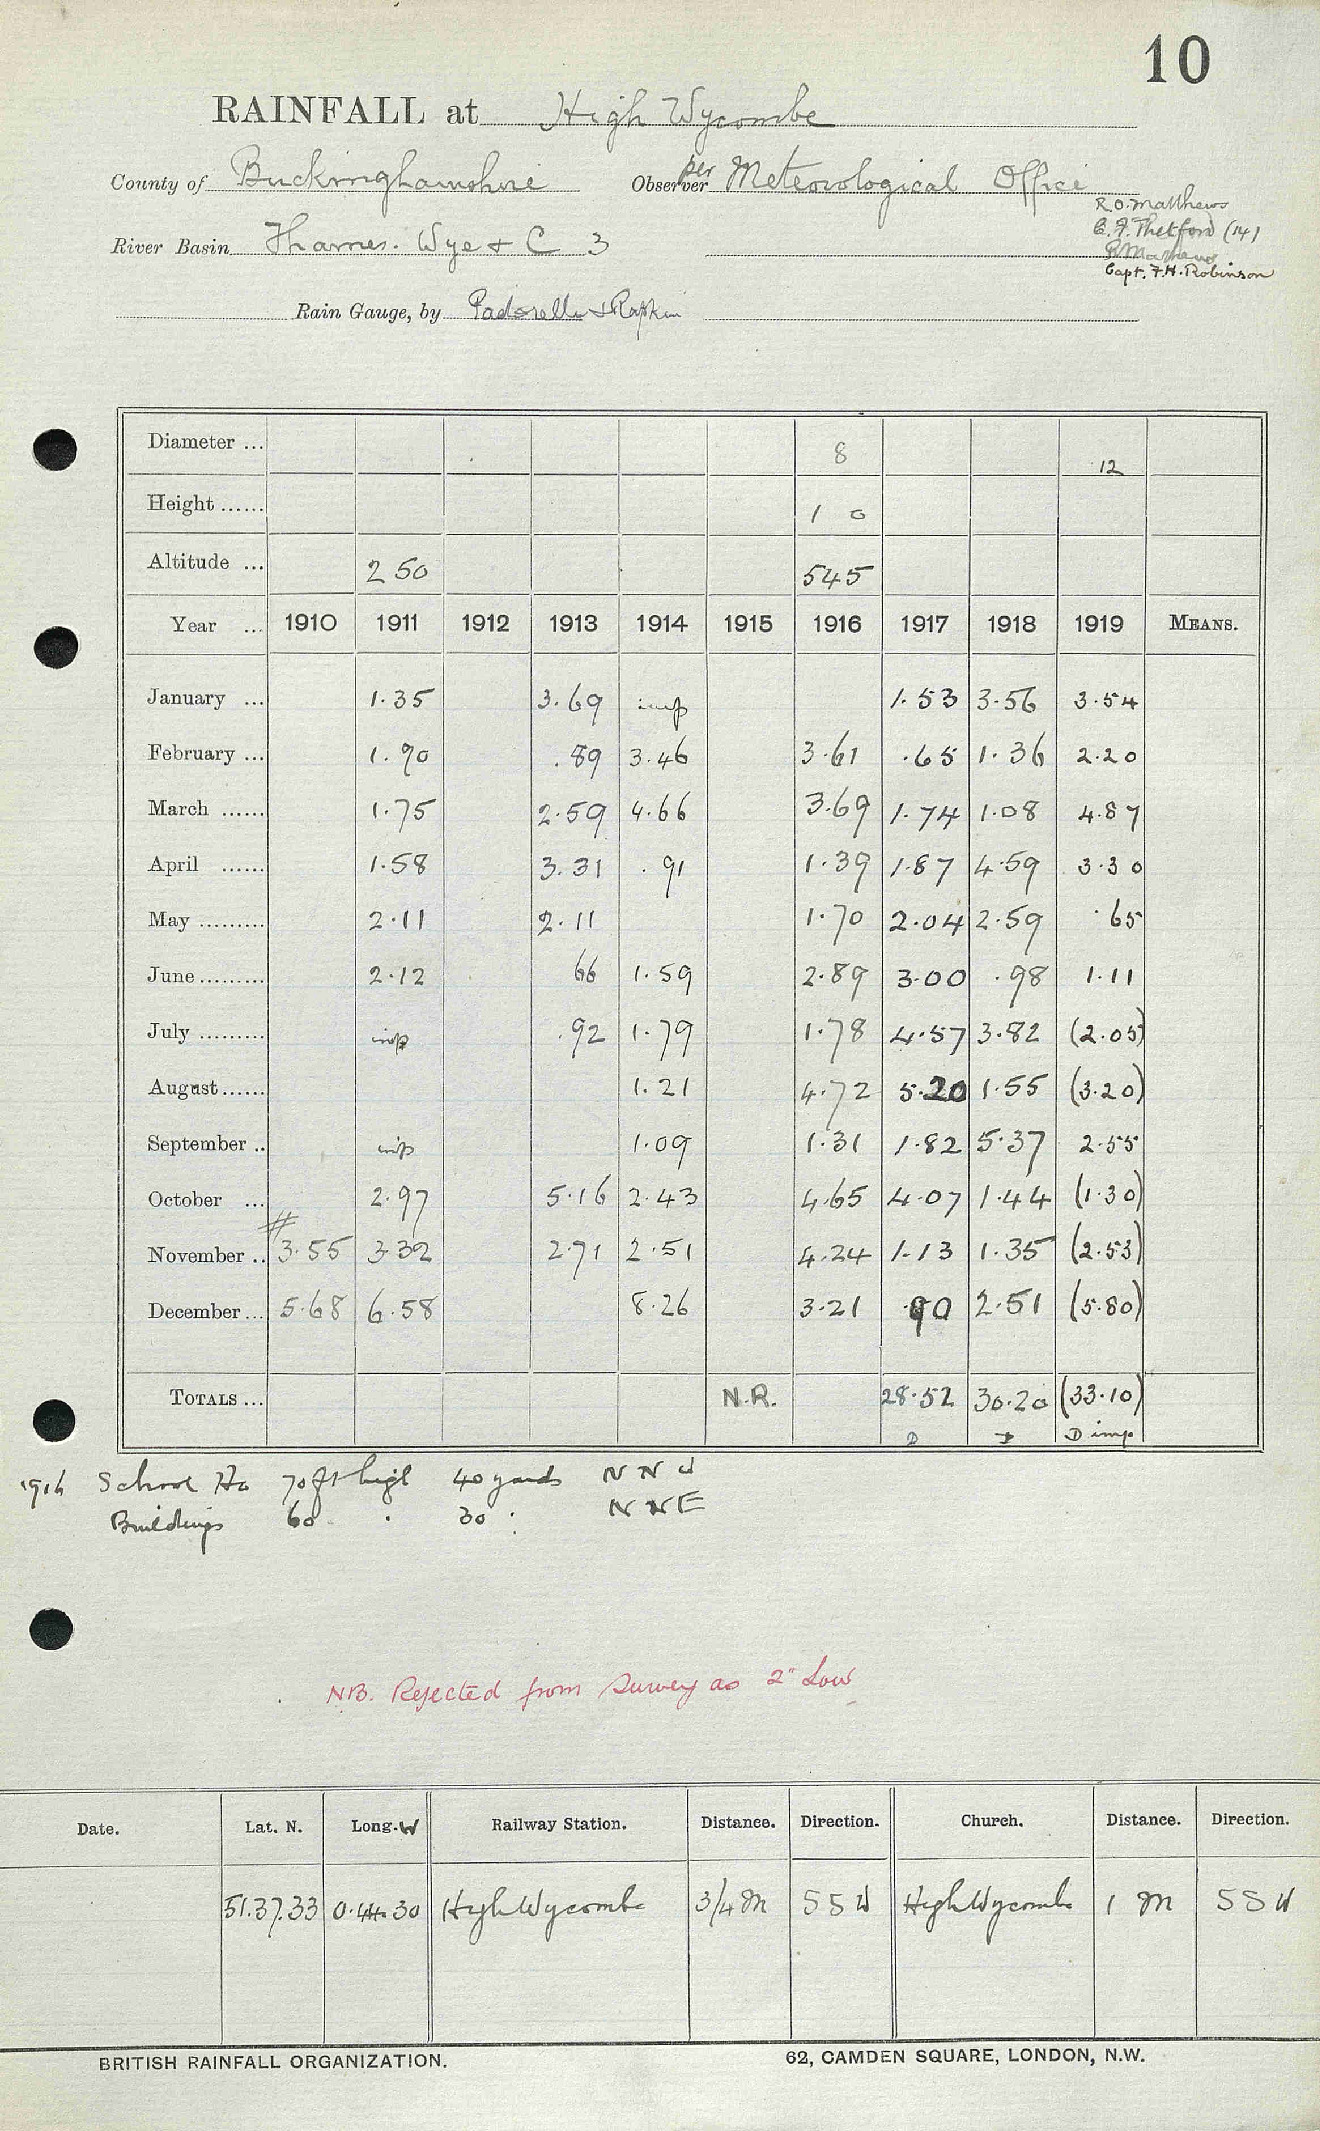 10
RAINFALL at High Wycombe
County of Buckinghamshire Observer per Meteorological Office
R.O. Matthews
River Basin Thames. Wye & C 3
C. F. Thetford (14)
R Matthews
Capt. F. H. Robinson
Rain Gauge, by Padorelli & Rapkin
Diameter ... 8 12
Height ...... 1 0
Altitude ... 250 545
Year ... 1910 1911 1912 1913 1914 1915 1916 1917 1918 1919 MEANS.
January ... 1.35 3.69 imp 1.53 3.56 3.54
February ... 1.90 .89 3.46 3.61 .65 1.36 2.20
March ...... 1.75 2.59 4.66 3.69 1.74 1.08 4.87
April ...... 1.58 3.31 .91 1.39 1.87 4.59 3.30
May .......... 2.11 2.11 1.70 2.04 2.59 .65
June ......... 2.12 66 1.59 2.89 3.00 .98 1.11
July ......... imp .92 1.79 1.78 4.57 3.82 (2.05)
August ...... 1.21 4.72 5.20 1.55 (3.20)
September .. imp 1.09 1.31 1.82 5.37 2.55
October ... 2.97 5.16 2.43 4.65 4.07 1.44 (1.30)
#
November .. 3.55 3.32 2.71 2.51 4.24 1.13 1.35 (2.53)
December ... 5.68 6.58 8.26 3.21 .90 2.51 (5.80)
TOTALS ... N.R. 28.52 30.20 (33.10)
D D D imp
1916 School Ho 70 ft high 40 yards N N W
Buildings 60 . 30 : N N E
NB. Rejected from Survey as 2" Low
Date. Lat. N. Long. W Railway Station. Distance. Direction. Church. Distance. Direction.
51.37.33 0.44.30 High Wycombe 3/4 M S S W High Wycombe 1 M S S W
BRITISH RAINFALL ORGANIZATION. 62, CAMDEN SQUARE, LONDON, N.W.